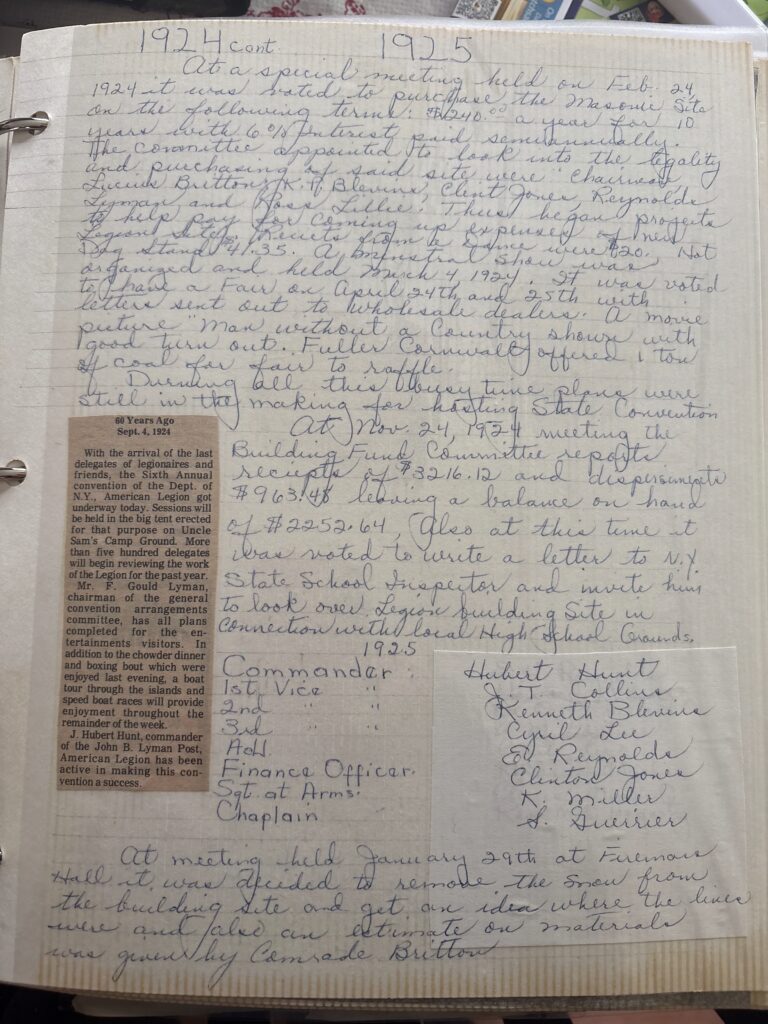 1924 cont. 1925
At a special meeting held on Feb. 24,
1924 it was voted to purchase the Masonic Site
on the following terms: $1240.00 a year for 10
years with 6% interest paid semiannually.
The committee appointed to look into the legality
and purchasing of said site were "Chairman
Lucius Britton, K. P. Blevins, Clint Jones, Reynolds
Lyman and Ross Lillie. Thus began projects
to help pay for coming up expenses of new
Legion Site. Reciets from a Game were $20. Hot
Dog Stand $41.35. A Minstral Show was
organized and held March 4 1924. It was voted
to have a Fair on April 24th and 25th with
letters sent out to wholesale dealers. A movie
picture "Man without a Country shown with
good turn out. Fuller Cornwall offered 1 ton
of coal for fair to raffle.
Durning all this busy time plans were
still in the making for hosting State Convention
At Nov. 24, 1924 meeting the
Building Fund Committee reports
reciepts of $3216.12 and dispersments
$963.48 leaving a balance on hand
of $2252.64, Also at this time it
was voted to write a letter to N.Y.
State School Inspector and invite him
to look over Legion building Site in
connection with local High School Grounds.
60 Years Ago
Sept. 4, 1924
With the arrival of the last
delegates of legionaires and
friends, the Sixth Annual
convention of the Dept. of
N.Y., American Legion got
underway today. Sessions will
be held in the big tent erected
for that purpose on Uncle
Sam's Camp Ground. More
than five hundred delegates
will begin reviewing the work
of the Legion for the past year.
Mr. F. Gould Lyman,
chairman of the general
convention arrangements
committee, has all plans
completed for the en-
tertainments visitors. In
addition to the chowder dinner
and boxing bout which were
enjoyed last evening, a boat
tour through the islands and
speed boat races will provide
enjoyment throughout the
remainder of the week.
J. Hubert Hunt, commander
of the John B. Lyman Post,
American Legion has been
active in making this con-
vention a success.
1925
Commander Hubert Hunt
1st Vice " J. T. Collins
2nd " " Kenneth Blevins
3rd " " Cyril Lee
Adj. Ed Reynolds
Finance Officer. Clinton Jones
Sgt. at Arms. K. Miller
Chaplain S. Guerrier
At meeting held January 29th at Firemans
Hall it was decided to remove the snow from
the building site and get an idea where the lines
were and also an estimate on materials
was given by Comrade Britton